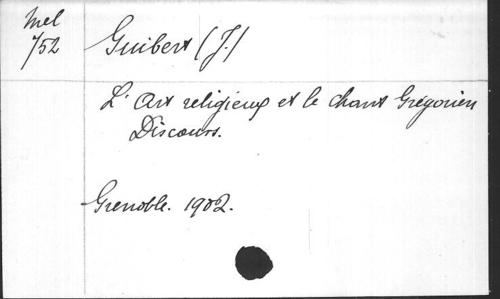 Mel
752
Guibert (J.)
L'Art religieux et le Chant Grégorien
Discours.
Grenoble. 1902.